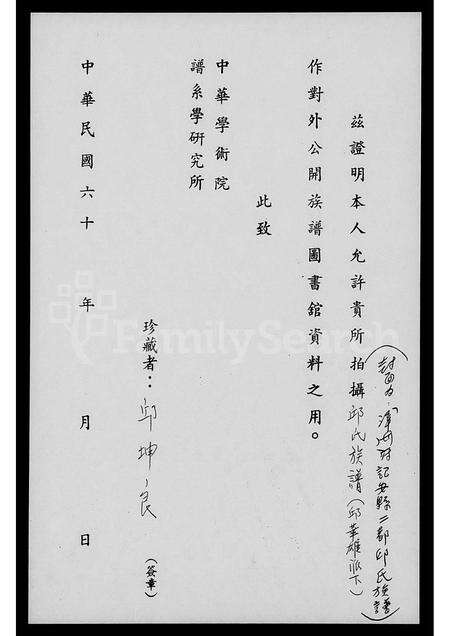 茲證明本人允許貴所拍攝邱氏族譜(邱華雄派下)
(封面為:漳州府詔安縣二都邱氏族譜)
作對外公開族譜圖書館資料之用。
此致
中華學術院
譜系學研究所
珍藏者:邱坤良(簽章)
中華民國六十 年 月 日
FamilySearch